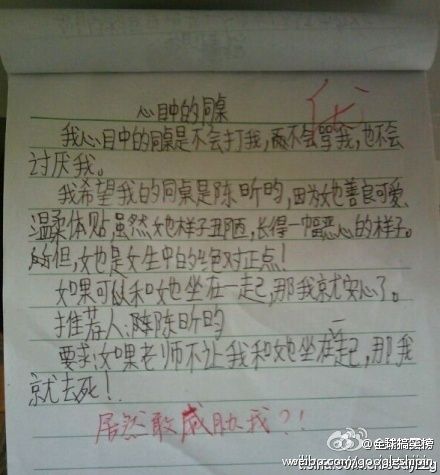 心目中的同桌
优
我心目中的同桌是不会打我,不会骂我,也不会
讨厌我。
我希望我的同桌是陈昕昀,因为她善良可爱、
温柔体贴,虽然她样子丑陋,长得一幅恶心的样子。
但,她也是女生中的绝对正点!
如果可以和她坐在一起,那我就安心了。
推荐人:陈昕昀
要求:如果老师不让我和她坐在一起,那我
就去死!
居然敢威胁我?!
@全球搞笑榜